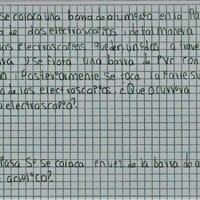 se coloca una barra de alumento en la Pa
de dos electroscopios de tal manera
los electroscopios quedan unidos a trave
rra y se frota una barra de PVC con
Posteriormente se toca la barra sup
de los electroscopios, ¿Que ocurrira
electroscopio?
Pasa si se coloca en vez de la barra de a
acrilico?